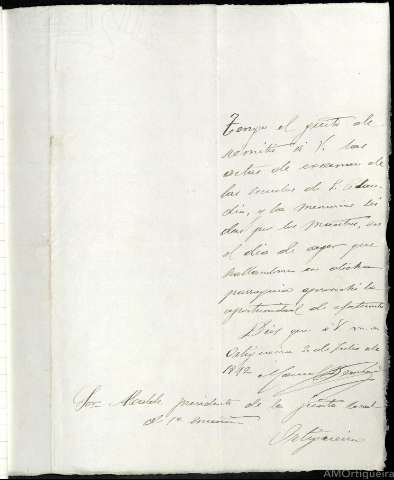 Tengo el gusto de
remitir á V. las
actas de examen de
las escuelas de S. Clau-
dio, y las memorias lei-
das por los maestros,
el dia de ayer que
hallandome en dicha
parroquia aproveché la
oportunidad de
Dios que á V. m. a.
Ortigueira 2 de Julio de
1892
Sor. Alcalde presidente de la junta local
de 1ª enseñanza
Ortigueira
AMOrtigueira